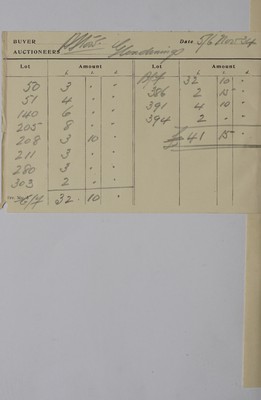 BUYER
AUCTIONEERS Glendining
Date 5/6 Nov.
Lot Amount
50 3 " "
51 4 " "
140 6 " "
205 8 " "
208 3 10 "
211 3 " "
280 3 " "
303 2 " "
32 10 "
Lot Amount
32 10 "
386 2 15 "
391 4 10 "
394 2 " "
£ 41 15 "